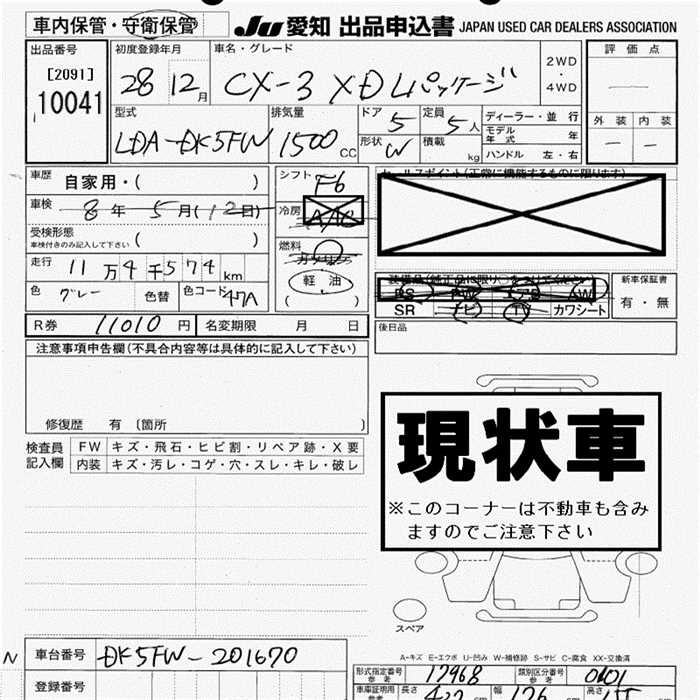 車内保管・守衛保管
JU 愛知 出品申込書 JAPAN USED CAR DEALERS ASSOCIATION
出品番号
[2091]
10041
初度登録年月
28 12月
車名・グレード
CX-3 XD Lパッケージ
2WD
・
4WD
評価点
外装 内装
型式
LDA-DK5FW
排気量
1500cc
ドア 5
形状 W
定員 5人
積載 kg
ディーラー・並行
モデル年式 年
ハンドル 左・右
車歴 自家用・( )
車検 8年5月(12日)
受検形態
車検付きのみ記入して下さい ( )
走行 11万4千574km
色 グレー 色替 色コード 47A
シフト F6
冷房 A/AC
燃料
軽油
( )
セールスポイント(正常に機能するものに限ります)
PS PW AW
SR ナビ TV カワシート
新車保証書
有・無
後日品
R券 11010円 名変期限 月 日
注意事項申告欄(不具合内容等は具体的に記入して下さい)
修復歴 有 〔箇所 〕
検査員記入欄
FW キズ・飛石・ヒビ割・リペア跡・X要
内装 キズ・汚レ・コゲ・穴・スレ・キレ・破レ
現状車
※このコーナーは不動車も含み
ますのでご注意下さい
スペア
A-キズ E-エクボ U-凹み W-補修跡 S-サビ C-腐食 XX-交換済
N 車台番号 DK5FW-201670
登録番号
形式指定番号 参考 17968
類別区分番号 参考 0601
車庫証明用 参考 長さ 427 cm 幅 176 cm 高さ